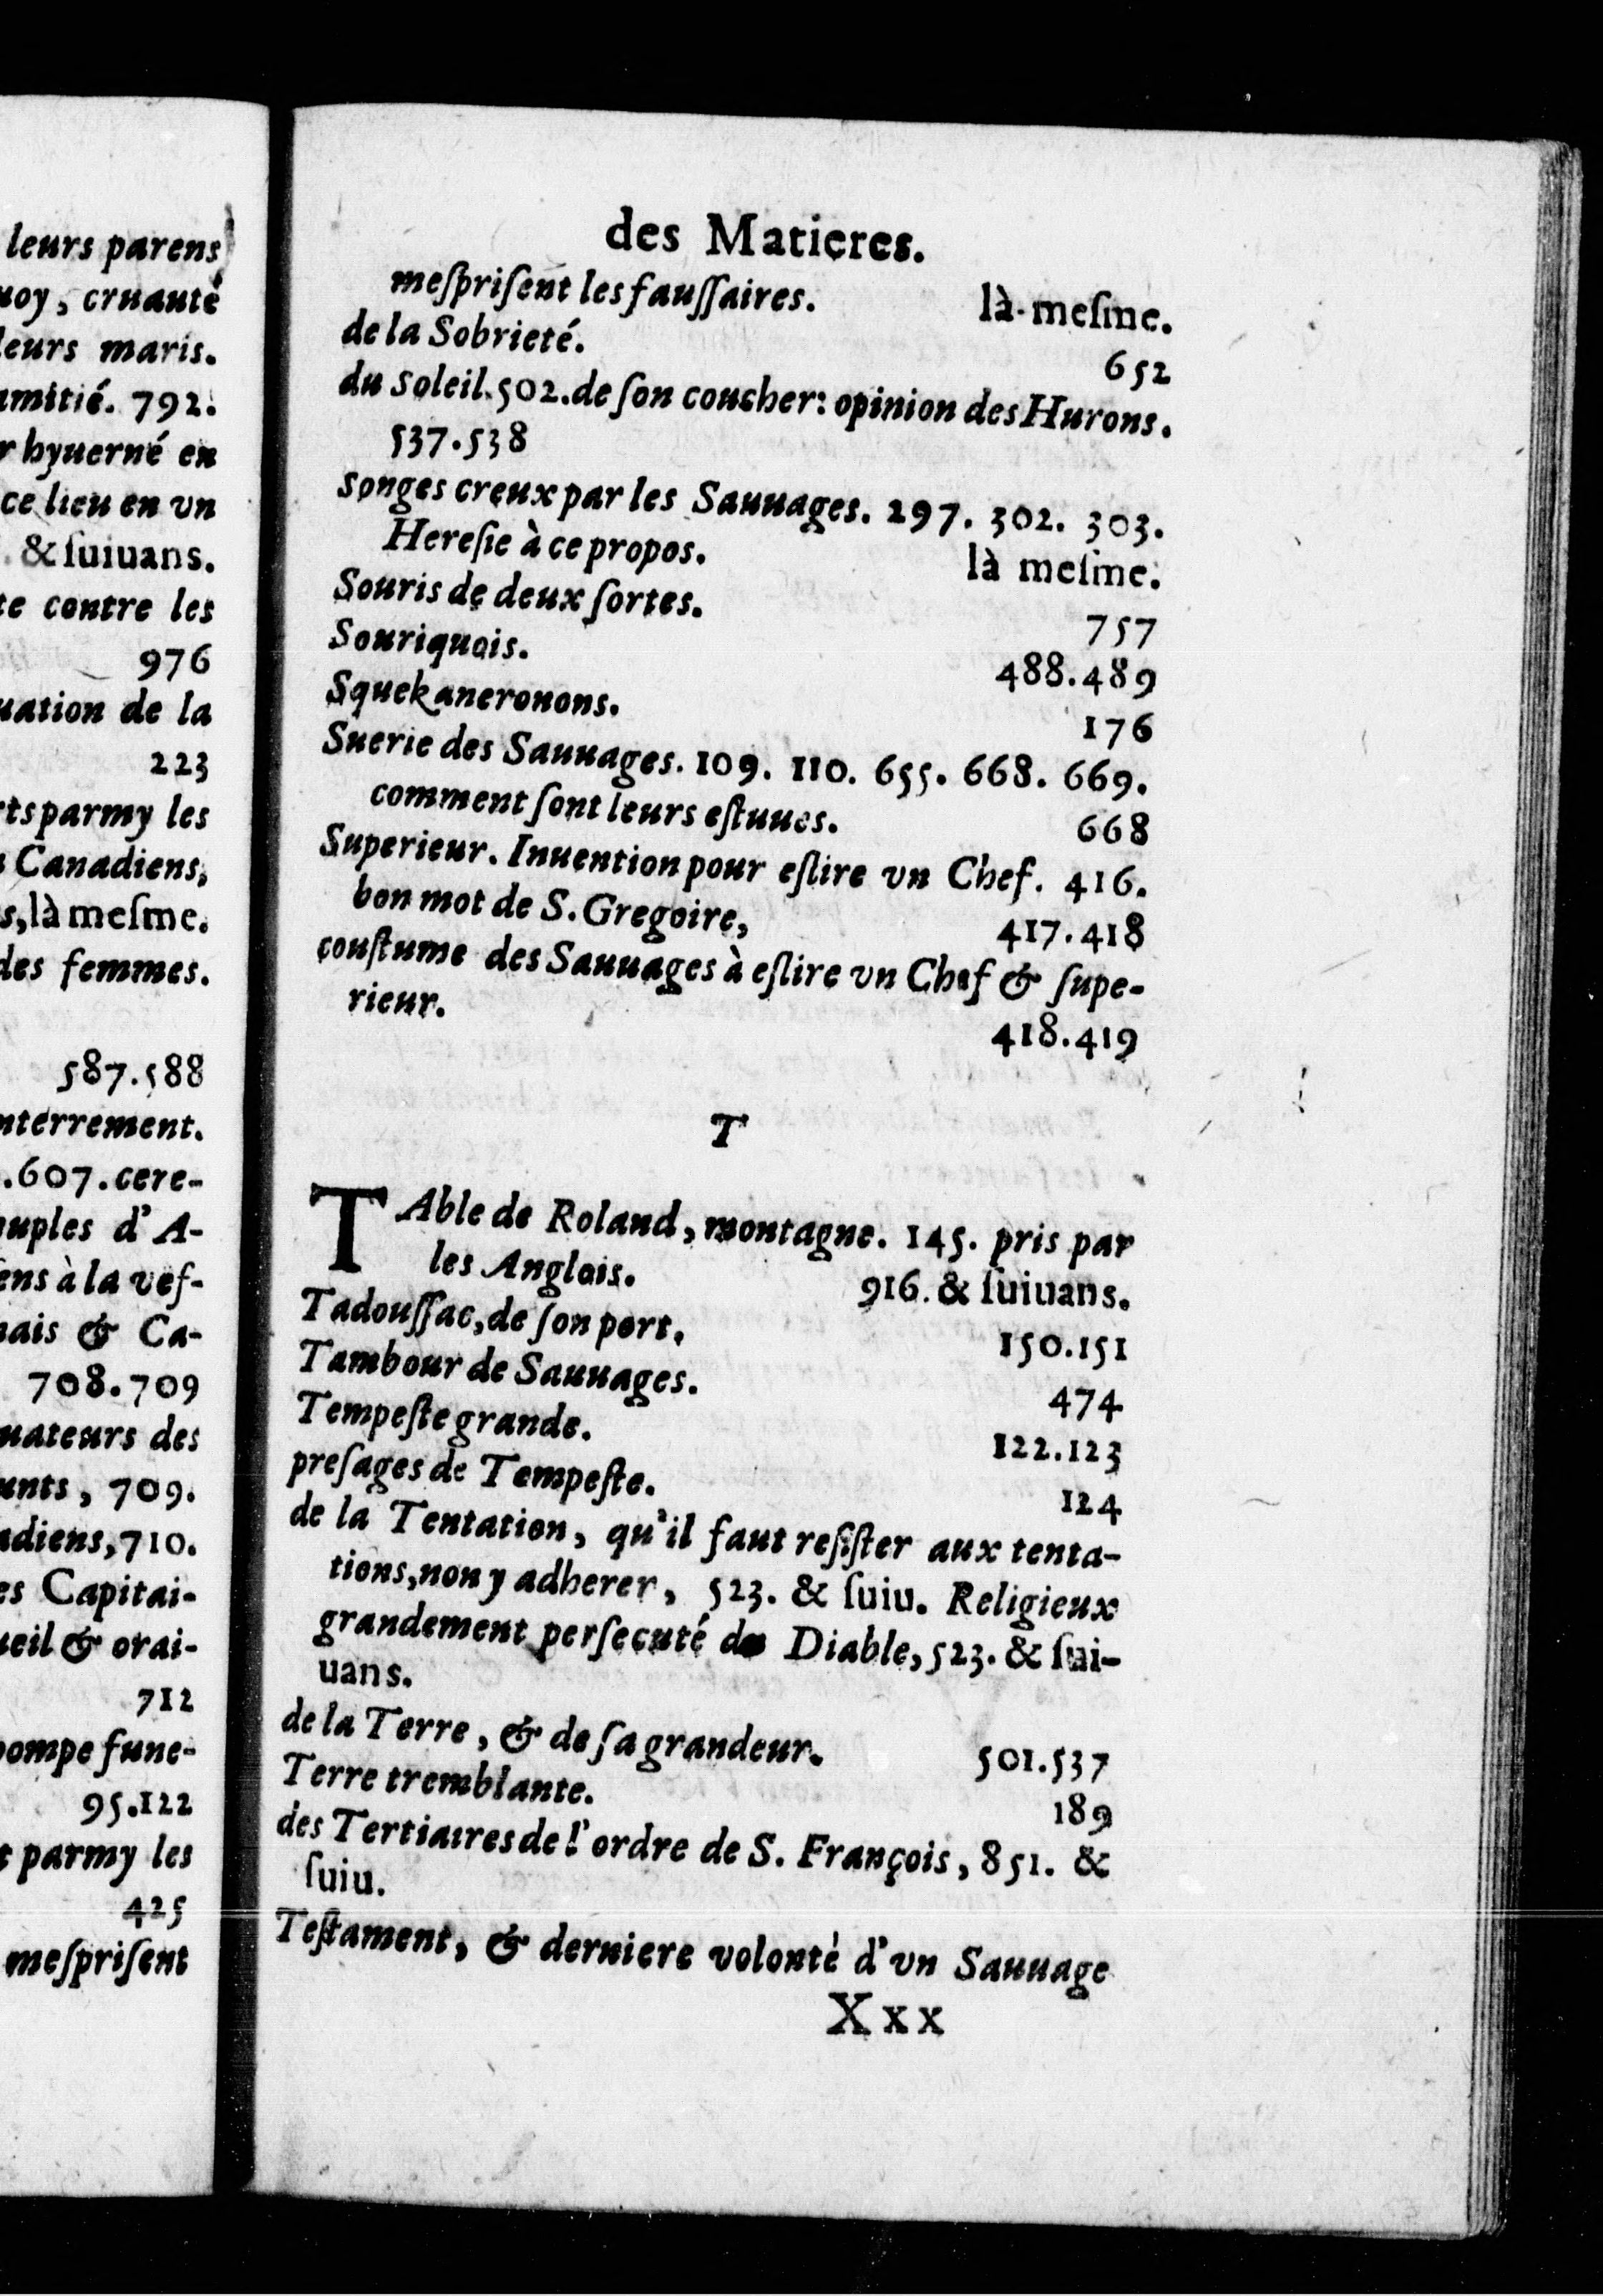 leurs parens
uoy, cruauté
leurs maris.
amitié. 792.
r hyuerné en
ce lieu en vn
. & ſuiuans.
te contre les
976
uation de la
223
rts parmy les
s Canadiens,
s, là meſme.
des femmes.
587.588
nterrement.
.607. cere-
uples d'A-
ens à la veſ-
nais & Ca-
708.709
uateurs des
unts, 709.
adiens, 710.
es Capitai-
ueil & orai-
712
pompe fune-
95.122
t parmy les
425
meſpriſent
des Matieres.
meſpriſent les fauſſaires. là-meſme.
de la Sobrieté. 652
du Soleil. 502. de ſon coucher: opinion des Hurons.
537.538
songes creux par les Sauuages. 297. 302. 303.
Hereſie à ce propos. là meſme.
Souris de deux ſortes. 757
Souriquois. 488.489
Squekaneronons. 176
Suerie des Sauuages. 109. 110. 655. 668. 669.
comment ſont leurs eſtuues. 668
Superieur. Inuention pour eſlire vn Chef. 416.
bon mot de S. Gregoire, 417.418
couſtume des Sauuages à eſlire vn Chef & ſupe-
rieur. 418.419
T
TAble de Roland, montagne. 145. pris par
les Anglois. 916. & ſuiuans.
Tadouſſac, de ſon port. 150.151
Tambour de Sauuages. 474
Tempeſte grande. 122.123
preſages de Tempeſte. 124
de la Tentation, qu'il faut reſiſter aux tenta-
tions, non y adherer, 523. & ſuiu. Religieux
grandement perſecuté du Diable, 523. & ſui-
uans.
de la Terre, & de ſa grandeur. 501.537
Terre tremblante. 189
des Tertiaires de l'ordre de S. François, 851. &
ſuiu.
Teſtament, & derniere volonté d'vn Sauuage
Xxx